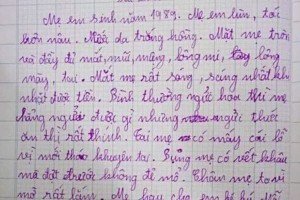 Mẹ em sinh năm 1989. Mẹ em lùn, tóc
hơn nâu. Mắt da trông không. Mặt mẹ tròn
và đầy đủ mắt, mũi, mồng, lông mi, lông
mày, tai. Mẹ rất sang, sang nhất khi
nhặt được tiền. Bình thường ngửi hoa thì mẹ
chẳng ngửi được gì nhưng ngửi thiết
ăn thì rất thính. Tai mẹ có mấy cái lỗ
vì mới tháo khuyên ta. Bụng mẹ có vết khâu
mà đợt trước không đẻ mổ. Chân mẹ to vì
mỡ rất lắm. Mẹ hay cho em